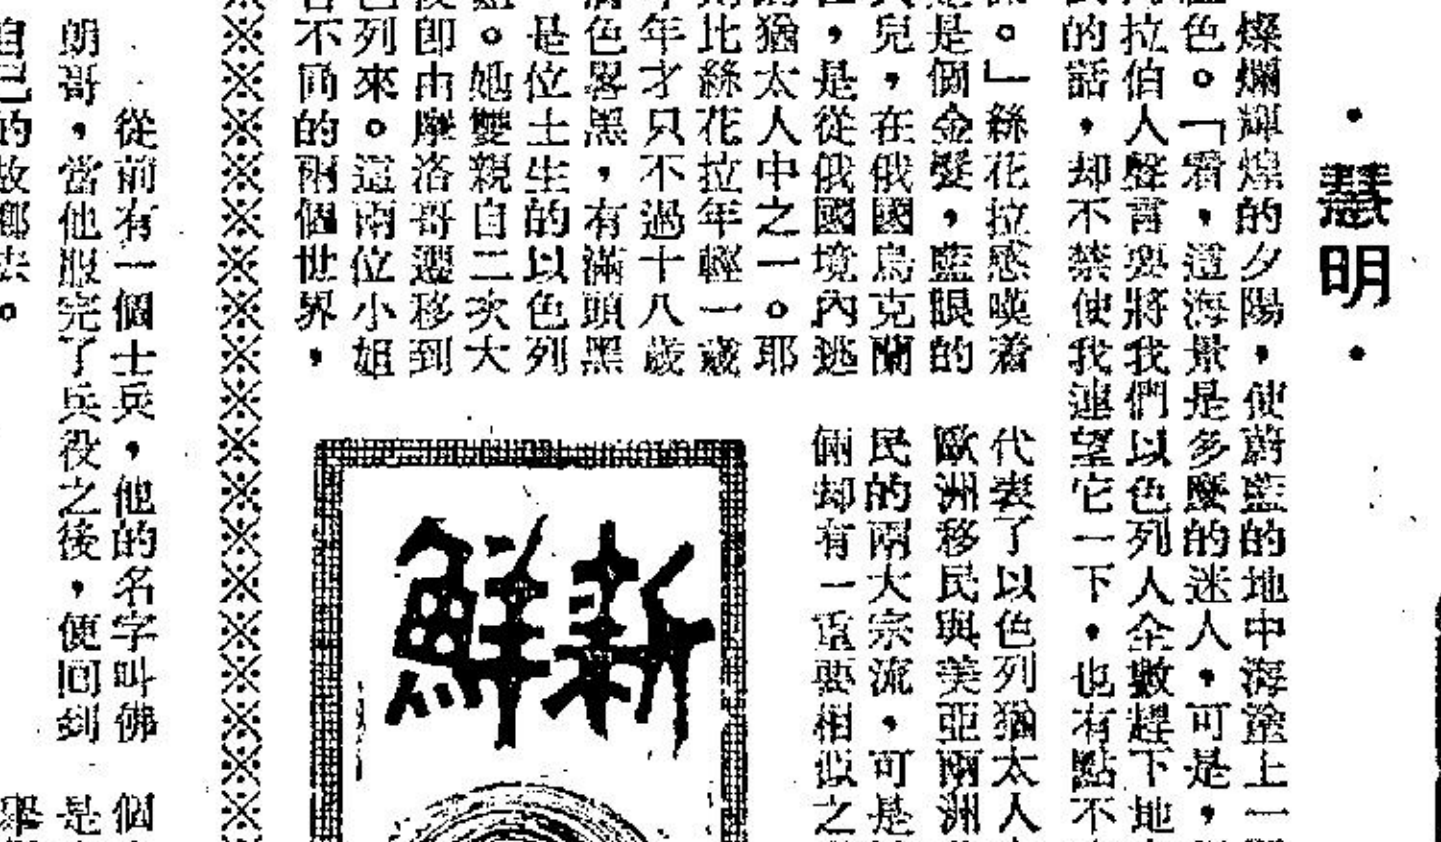 ・慧明・
燦爛輝煌的夕陽，使蔚藍的地中海塗上一
色。「看，這海景是多麼的迷人，可是，
拉伯人聲言要將我們以色列人全數趕下地
的話，却不禁使我連望它一下，也有點不
。」絲花拉惑嘆着
是個金髮，藍眼的
兒，在俄國烏克蘭
，是從俄國境內逃
猶太人中之一。耶
比絲花拉年輕一歲
年才只不過十八歲
色畧黑，有滿頭黑
是位土生的以色列
。她雙親自二次大
即由摩洛哥遷移到
列來。這兩位小姐
不同的兩個世界，
代表了以色列猶太人
歐洲移民與美亞兩洲
民的兩大宗流，可是
倆却有一重要相似之
新鮮
從前有一個士兵，他的名字叫佛
朗哥，當他服完了兵役之後，便回到
自己的故鄉去。
個
是